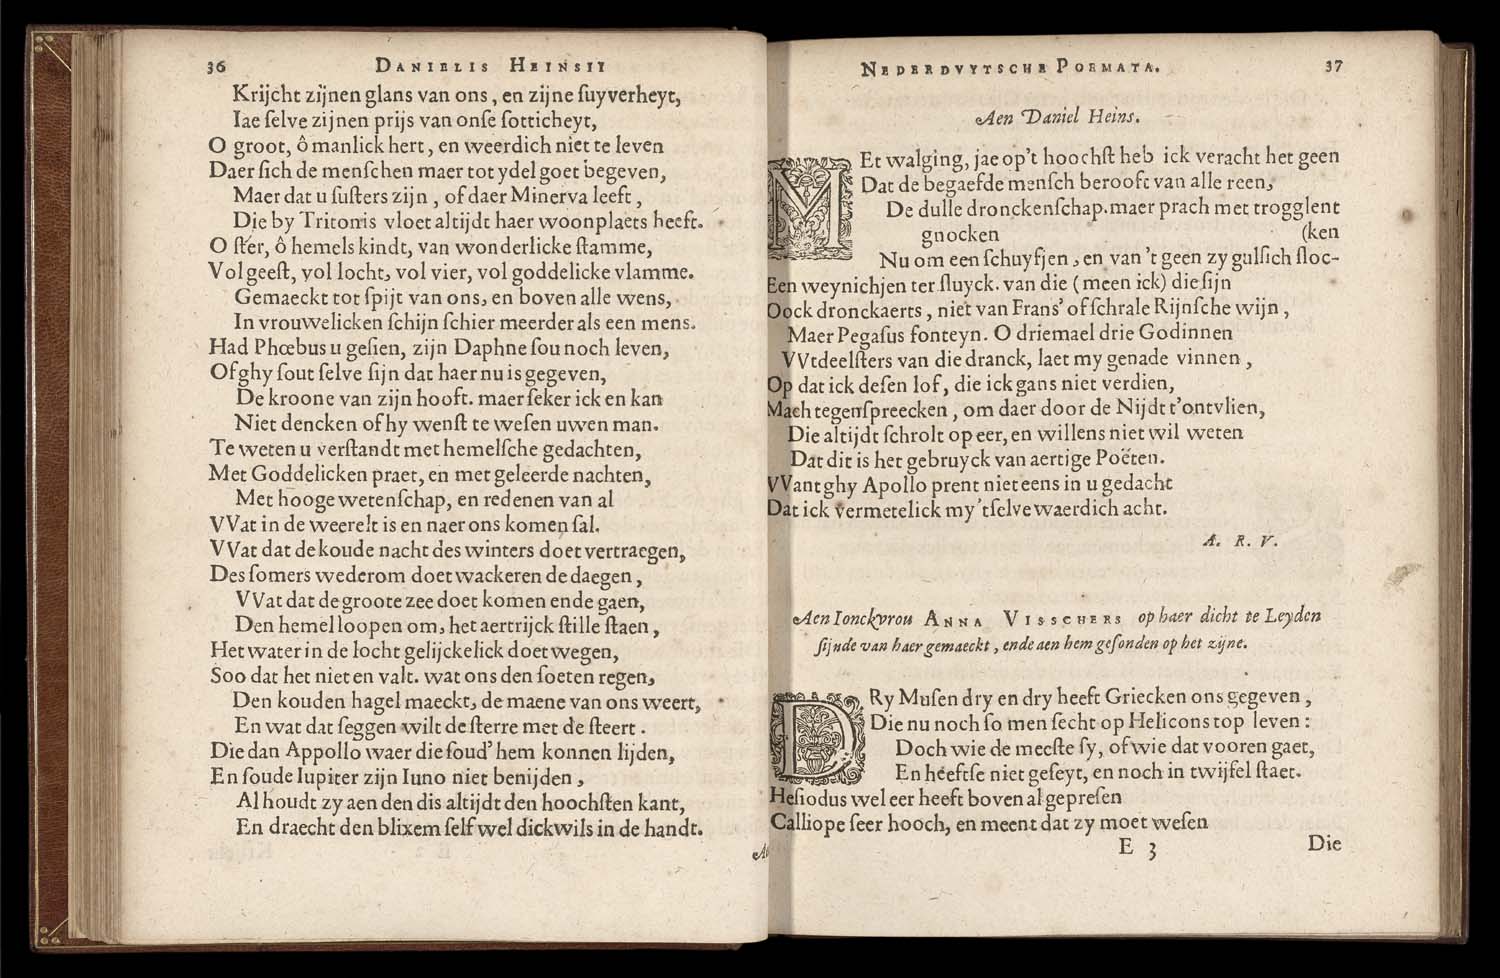 36 DANIELIS HEINSII
Krijcht zijnen glans van ons, en zijne suyverheyt,
Iae selve zijnen prijs van onse sotticheyt,
O groot, ô manlick hert, en weerdich niet te leven
Daer sich de menschen maer tot ydel goet begeven,
Maer dat u susters zijn, of daer Minerva leeft,
Die by Tritonis vloet altijdt haer woonplaets heeft.
O ster, ô hemels kindt, van wonderlicke stamme,
Vol geest, vol locht, vol vier, vol goddelicke vlamme.
Gemaeckt tot spijt van ons, en boven alle wens,
In vrouwelicken schijn schier meerder als een mens.
Had Phœbus u gesien, zijn Daphne sou nog leven,
Of ghy sout selve sijn dat haer nu is gegeven,
De kroone van zijn hooft. maer seker ick en kan
Niet dencken of hy wenst te wesen uwen man.
Te weten u verstandt met hemelsche gedachten,
Met Goddelicken praet, en met geleerde nachten,
Met hooge wetenschap, en redenen van al
VVat in de weerelt is en naer ons komen sal.
VVat dat de koude nacht des winters doet vertraegen,
Des somers wederom doet wackeren de daegen,
VVat dat de groote zee doet komen ende gaen,
Den hemel loopen om, het aertrijck stille staen,
Het water in de locht gelijckelick doet wegen,
Soo dat het niet en valt. wat ons den soeten regen,
Den kouden hagel maeckt, de maene van ons weert,
En wat dat seggen wilt de sterre met de steert.
Die dan Appollo waer die soud' hem konnen lijden,
En soude Iupiter zijn Iuno niet benijden,
Al houdt zy aen den dis altijdt den hoochsten kant,
En draecht den blixem self wel dickwils in de handt.
NEDERDVYTSCHE POEMATA. 37
Aen Daniel Heins.
MEt walging, jae op't hoochst heb ick veracht het geen
Dat de begaefde mensch berooft van alle reen,
De dulle dronckenschap. maer prach met trogglent
gnocken (ken
Nu om een schuyfjen, en van 't geen zy gulsich sloc-
Een weynichjen ter sluyck. van die (meen ick) die sijn
Oock dronckaerts, niet van Frans' of schrale Rijnsche wijn,
Maer Pegasus fonteyn. O driemael drie Godinnen
VVtdeelsters van die dranck, laet my genade vinnen,
Op dat ick desen lof, die ick gans niet verdien,
Mach tegenspreecken, om daer door de Nijdt t'ontvlien,
Die altijdt schrolt op eer, en willens niet wil weten
Dat dit is het gebruyck van aertige Poëten.
VVant ghy Apollo prent niet eens in u gedacht
Dat ick vermetelick my 'tselve waerdich acht.
A. R. V.
Aen Ionckvrou ANNA VISSCHERS op haer dicht te Leyden
sijnde van haer gemaeckt, ende aen hem gesonden op het zijne.
DRy Musen dry en dry heeft Griecken ons gegeven,
Die nu noch so men secht op Helicons top leven:
Doch wie de meeste sy, of wie dat vooren gaet,
En heeftse niet geseyt, en noch in twijfel staet.
Hesiodus wel eer heeft boven al gepresen
Calliope seer hooch, en meent dat zy moet wesen
E 3 Die